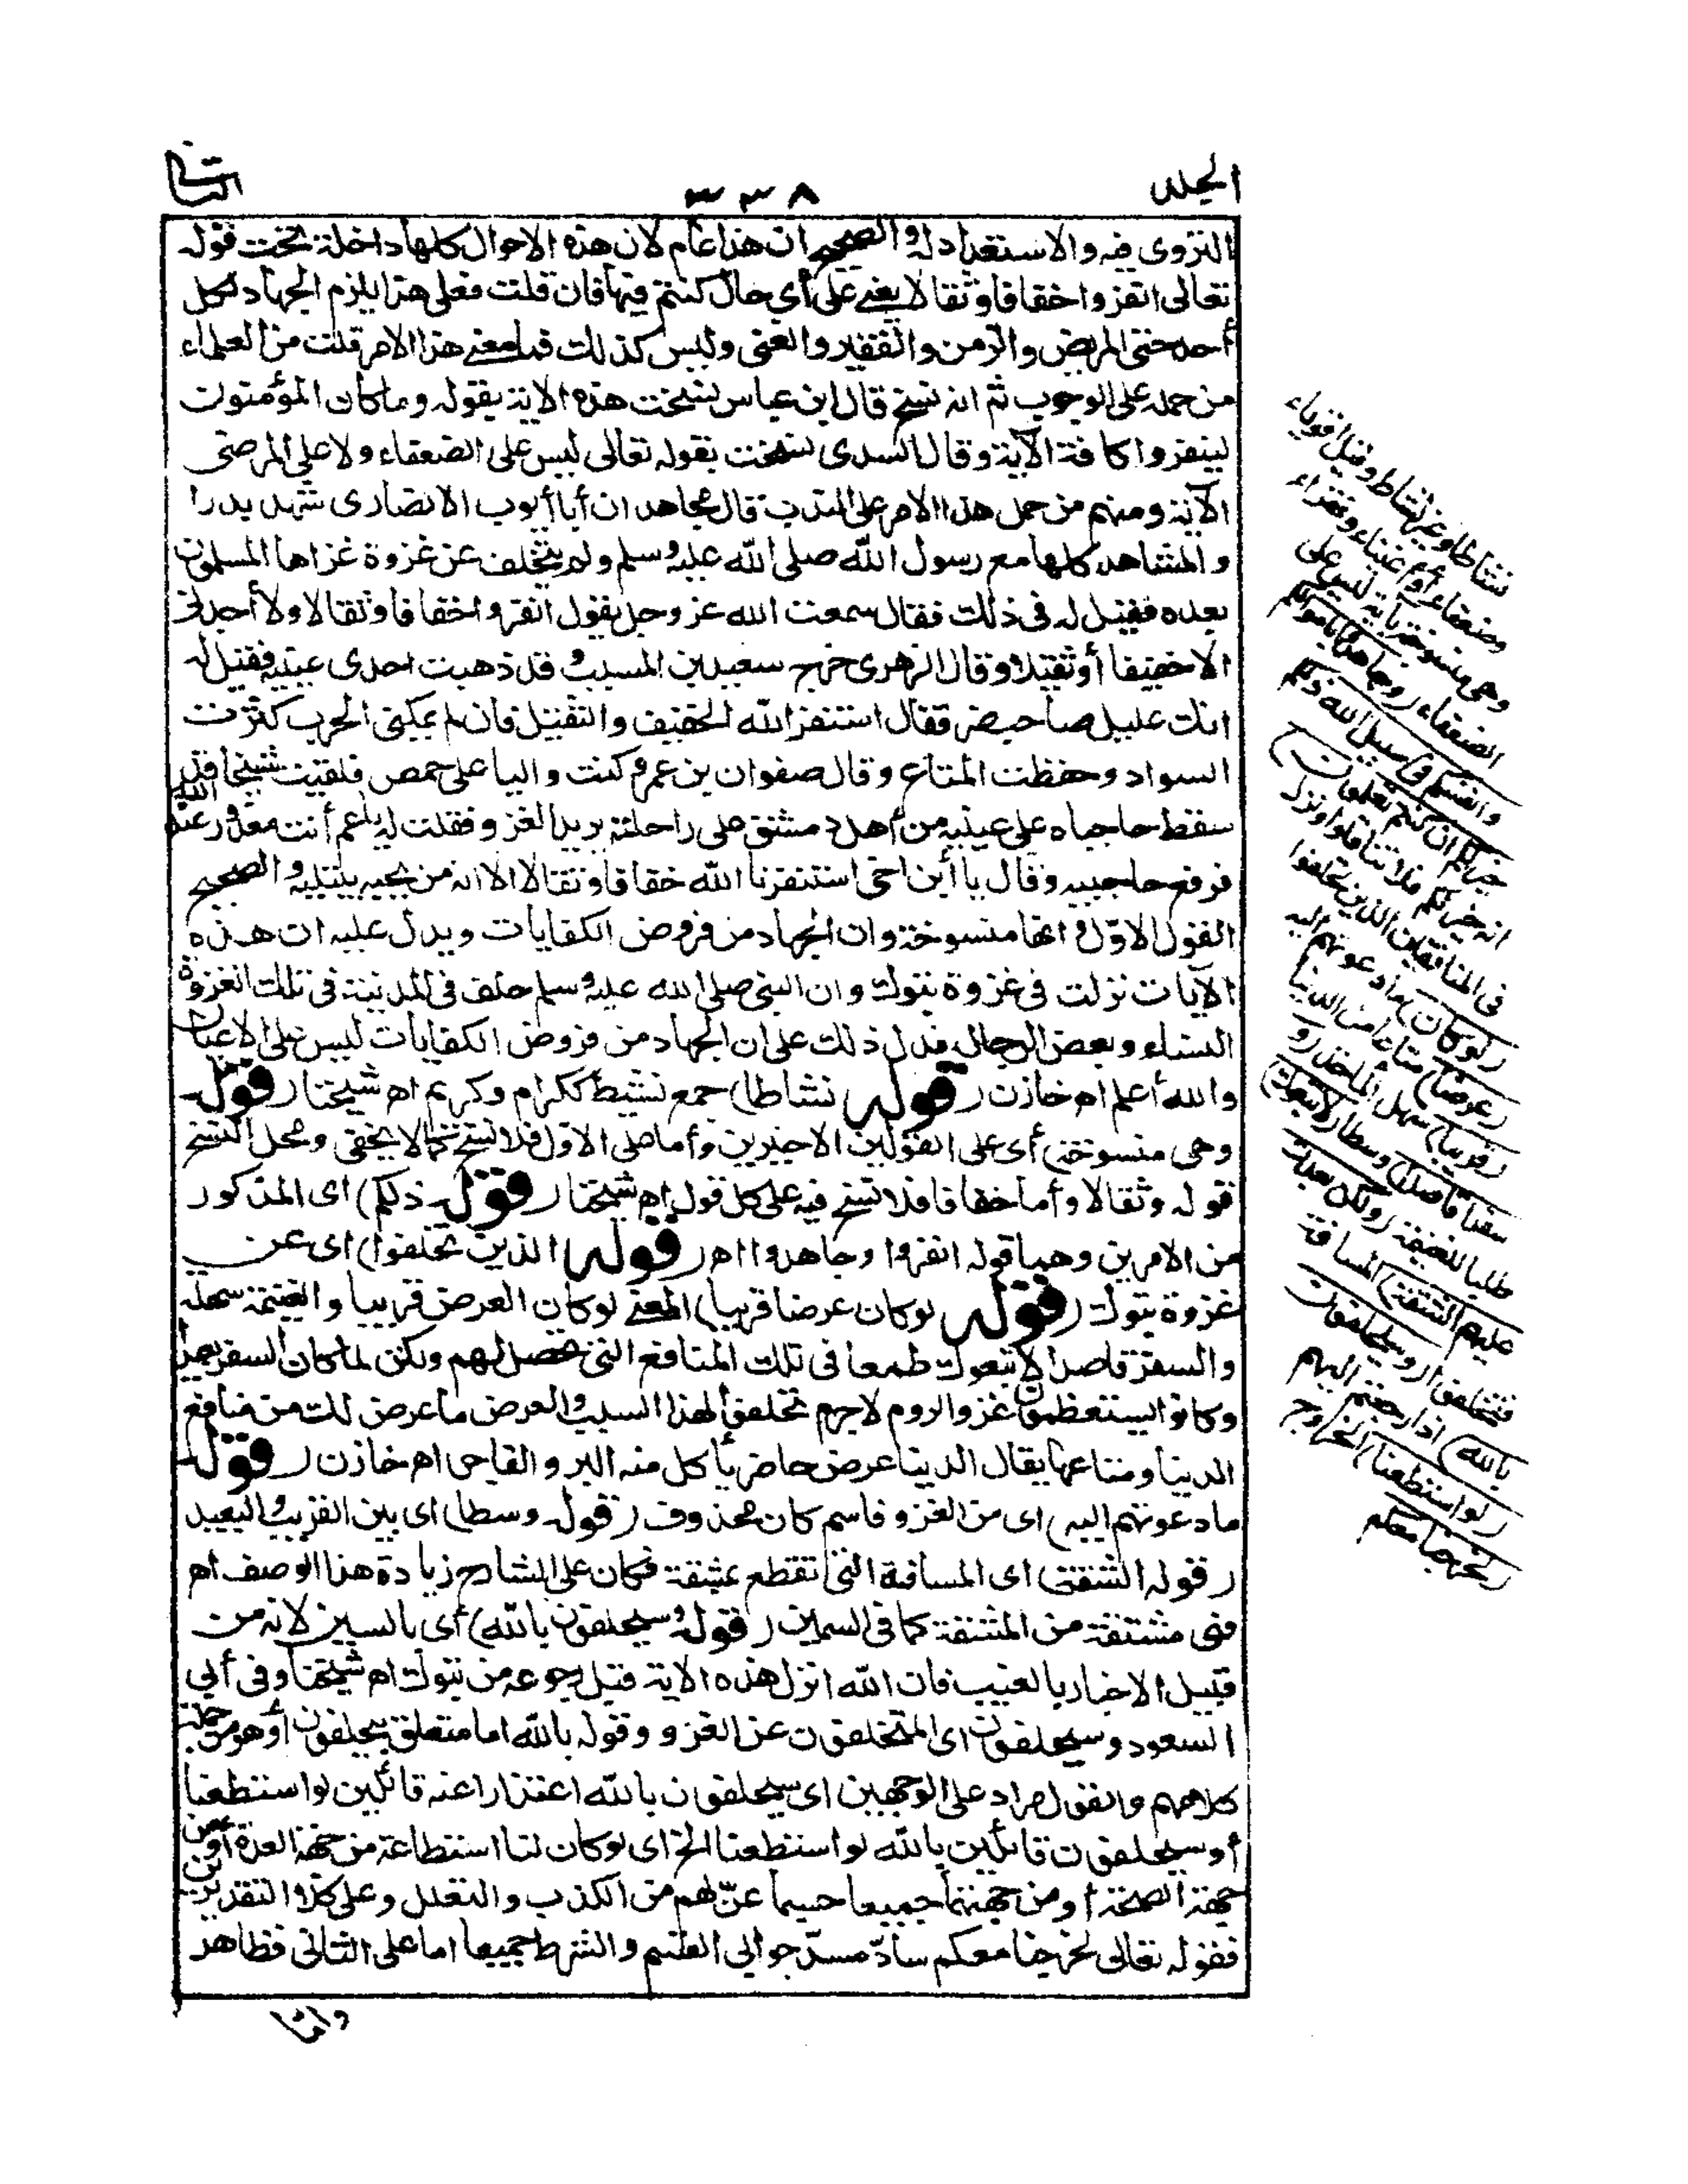 الجلد
٣٣٨
الثاني
التروى فيه والاستعداد له والصحيح ان هذا عام لان هذه الاحوال كلها داخلة تحت قوله
تعالى انفروا خفافا وثقالا يعنى على أي حال كنتم فيها فان قلت فعلى هذا يلزم الجهاد لكل
أحد حتى المريض والزمن والفقير والغنى وليس كذلك فما معنى هذا الامر قلت من العلماء
من حمله على الوجوب ثم انه نسخ قال ابن عباس نسخت هذه الاية بقوله وما كان المؤمنون
لينفروا كافة الآية وقال السدى نسخت بقوله تعالى ليس على الضعفاء ولا على المرضى
الآية ومنهم من حمل هذا الامر على الندب قال مجاهد ان أبا أيوب الانصارى شهد بدرا
والمشاهد كلها مع رسول الله صلى الله عليه وسلم ولم يتخلف عن غزوة غزاها المسلمون
بعده فقيل له فى ذلك فقال سمعت الله عز وجل يقول انفروا خفافا وثقالا ولا أجدنى
الا خفيفا أو ثقيلا وقال الزهرى خرج سعيد بن المسيب وقد ذهبت احدى عينيه فقيل له
انك عليل صاحب ضر فقال استنفر الله الخفيف والثقيل فان لم يمكنى الحرب كثرت
السواد وحفظت المتاع وقال صفوان بن عمرو كنت واليا على حمص فلقيت شيخا قد
سقط حاجباه على عينيه من أهل دمشق على راحلته يريد الغزو فقلت له يا عم أنت معذور عند الله
فرفع حاجبيه وقال يا أبن اخى استنفرنا الله خفافا وثقالا الا انه من يحبه يبتليه والصحيح
القول الاوّل انها منسوخة وان الجهاد من فروض الكفايات ويدل عليه ان هذه
الآيات نزلت فى غزوة تبوك وان النبى صلى الله عليه وسلم خلف فى المدينة فى تلك الغزوة
النساء وبعض الرجال فدل ذلك على ان الجهاد من فروض الكفايات ليس على الاعيان
والله أعلم اه خازن (قوله نشاطا) جمع نشيط ككرام وكريم اه شيخنا (قوله
وهى منسوخة) أى على القولين الاخيرين وأما على الاول فلا نسخ كما لا يخفى ومحل النسخ
قوله وثقالا وأما خفافا فلا نسخ فيه على كل قول اه شيخنا (قوله ذلكم) اى المذكور
من الامرين وهما قوله انفروا وجاهدوا اه (قوله الذين تخلفوا) اى عن
غزوة تبوك (قوله لو كان عرضا قريبا) المعنى لو كان العرض قريبا والغنيمة سهلة
والسفر قاصدا لاتبعوك طمعا فى تلك المنافع التى تحصل لهم ولكن لما كان السفر بعيدا
وكانوا يستعظمون غزو الروم لا جرم تخلفوا لهذا السبب والعرض ما عرض لك من منافع
الدنيا ومتاعها يقال الدنيا عرض حاضر يأكل منه البر والفاجر اه خازن (قوله
ما دعوتهم اليه) اى من الغزو فاسم كان محذوف (قوله وسطا) اى بين القريب والبعيد
(قوله الشقة) اى المسافة التى تقطع بمشقة فكان على الشارح زيادة هذا الوصف اه
فهى مشتقة من المشقة كما فى السمين (قوله وسيحلفون بالله) أى بالسين لانه من
قبيل الاخبار بالغيب فان الله انزل هذه الاية قبل رجوعه من تبوك اه شيخنا وفى أبى
السعود وسيحلفون اى المتخلفون عن الغزو وقوله بالله اما متعلق بيحلفون أو هو من جملة
كلامهم والقول مراد على الوجهين اى سيحلفون بالله اعتذارا عنه قائلين لو استطعنا
أو سيحلفون قائلين بالله لو استطعنا الخ اى لو كان لنا استطاعة من جهة العدة أو من
جهة الصحة او من جهتهما جميعا حسبما عنّ لهم من الكذب والتعلل وعلى كلا التقديرين
فقوله تعالى لخرجنا معكم سادّ مسدّ جوابى القسم والشرط جميعا اما على الثانى فظاهر
واما
نشاطا وغير نشاط وقيل اقوياء
وضعفاء أو أغنياء وفقراء
وهى منسوخة بآية ليس على
الضعفاء (وجاهدوا باموالكم
وانفسكم فى سبيل الله ذلكم
خير لكم ان كنتم تعلمون)
انه خير لكم فلا تثاقلوا ونزل
فى المنافقين الذين تخلفوا
(لو كان) ما دعوتهم اليه
(عرضا) متاعا من الدنيا
(قريبا) سهل المأخذ (و
سفرا قاصدا) وسطا (لاتبعوك)
طلبا للغنيمة (ولكن بعدت
عليهم الشقة) المسافة
فتخلفوا (وسيحلفون
بالله) اذا رجعتم اليهم
(لو استطعنا) الخروج
(لخرجنا معكم